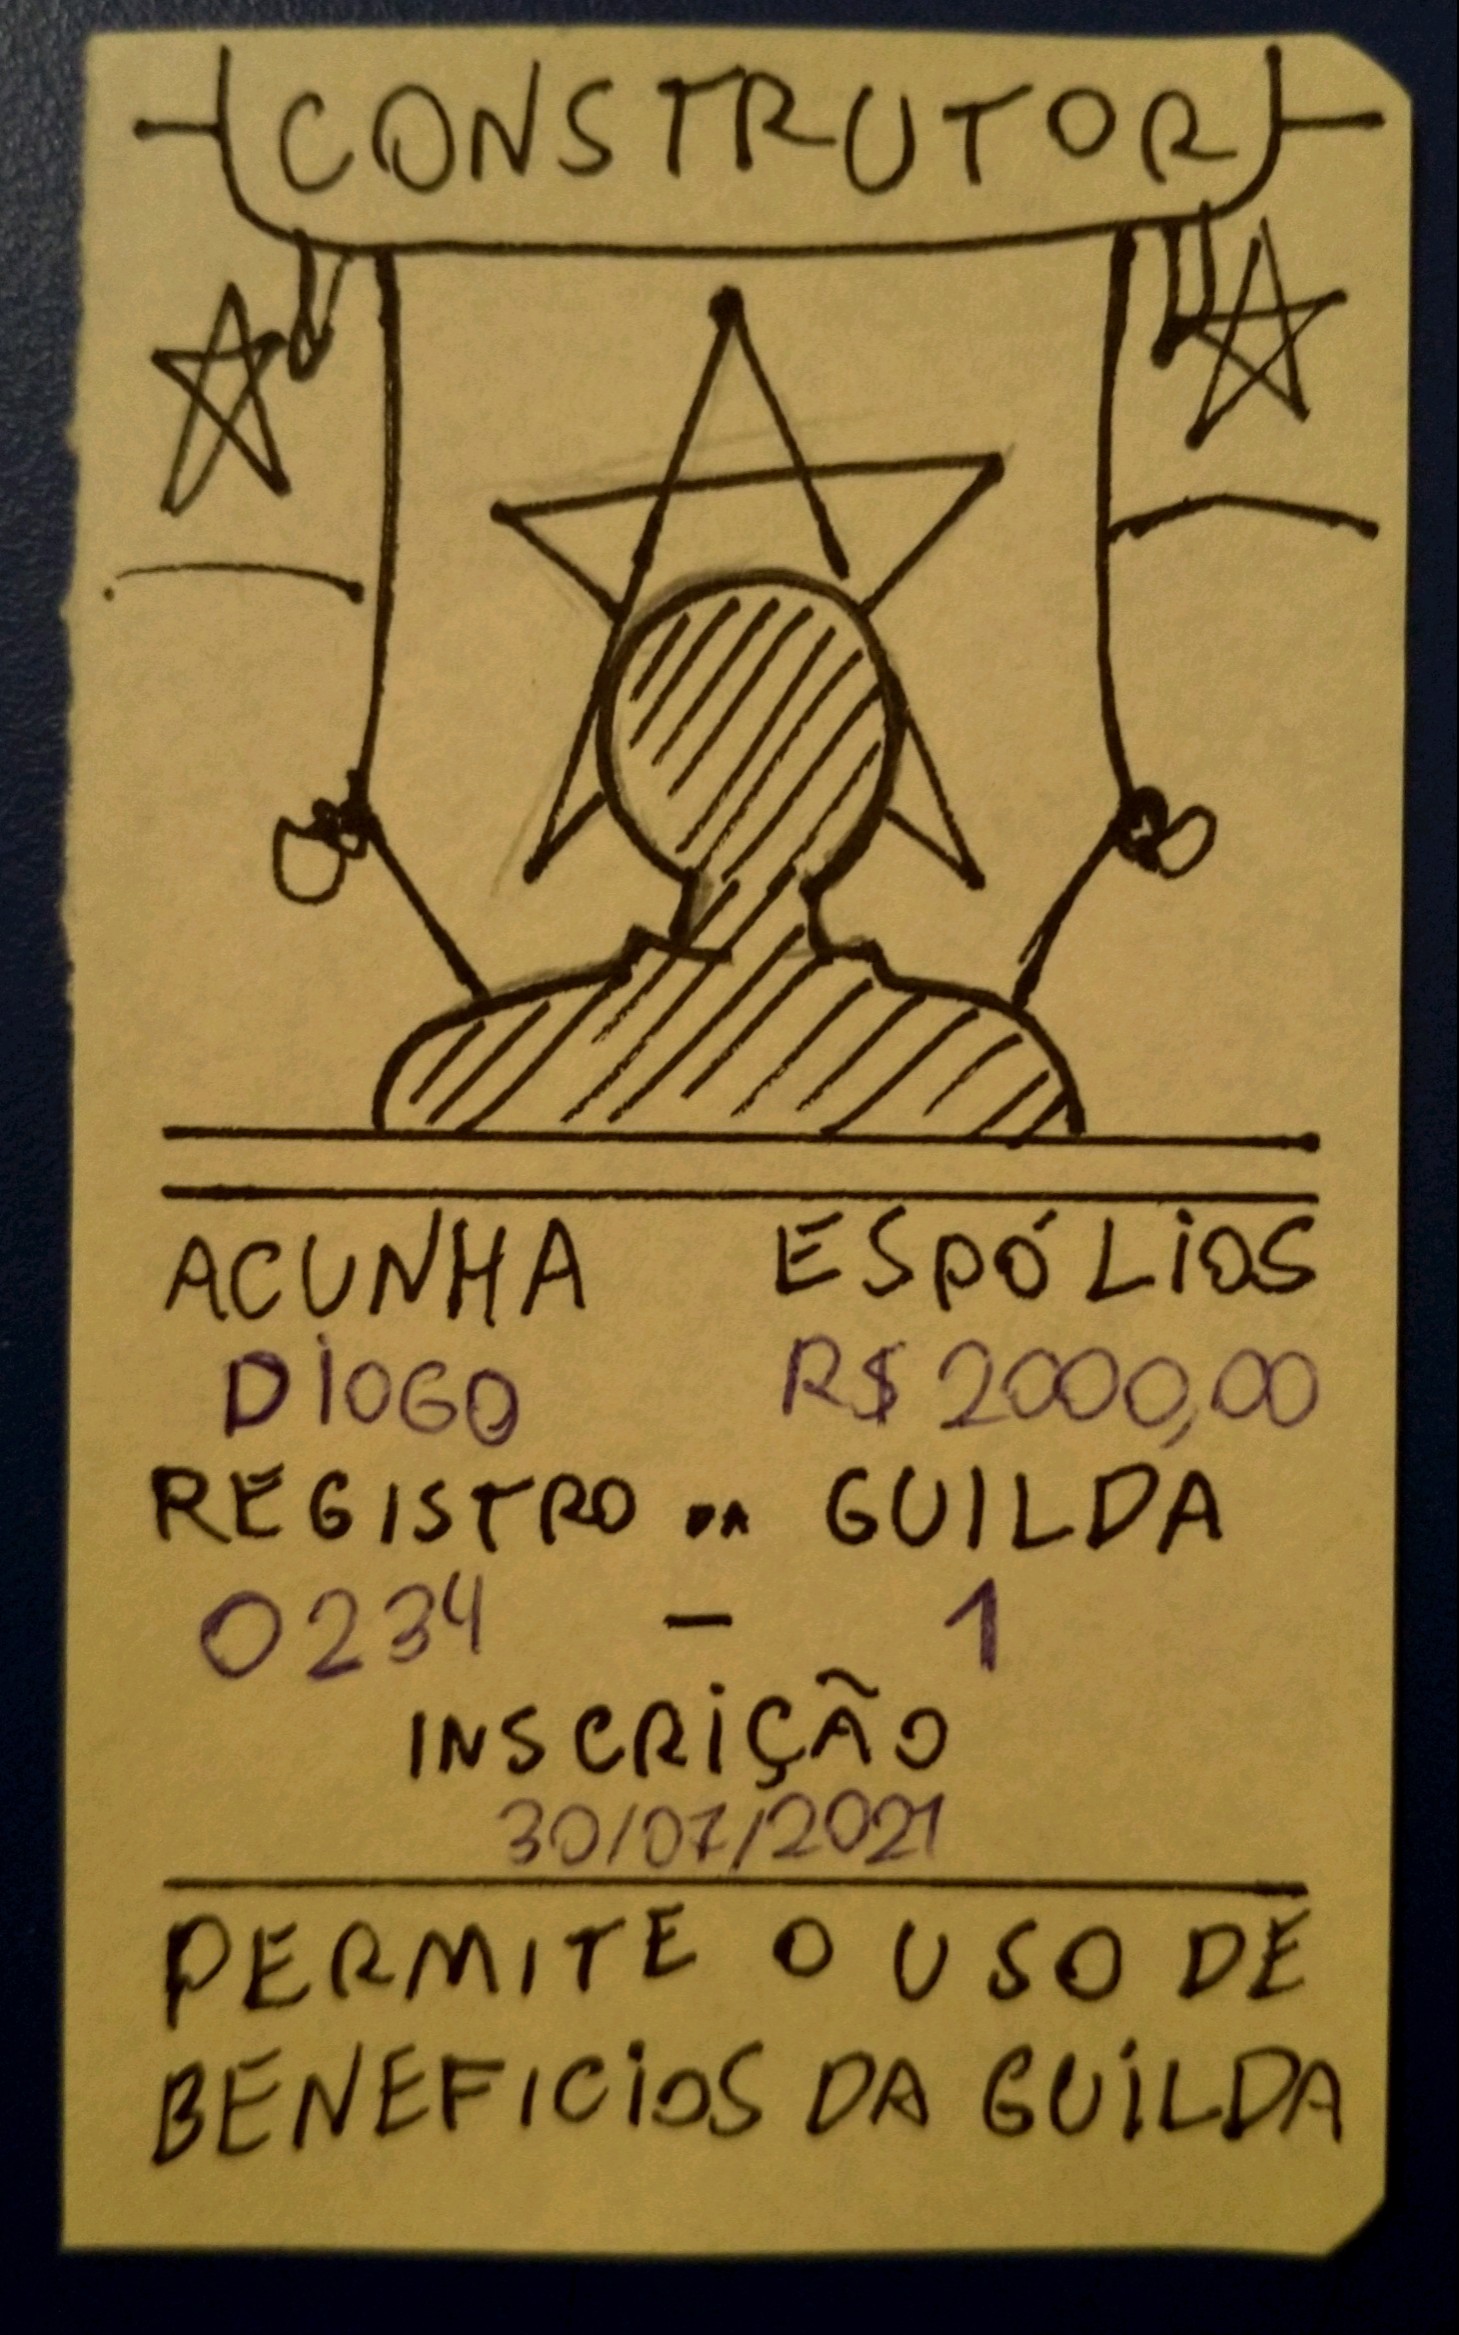 CONSTRUTOR
ACUNHA ESPÓLIOS
DIOGO R$ 2000,00
REGISTRO DA GUILDA
0234 - 1
INSCRIÇÃO
30/07/2021
PERMITE O USO DE
BENEFICIOS DA GUILDA